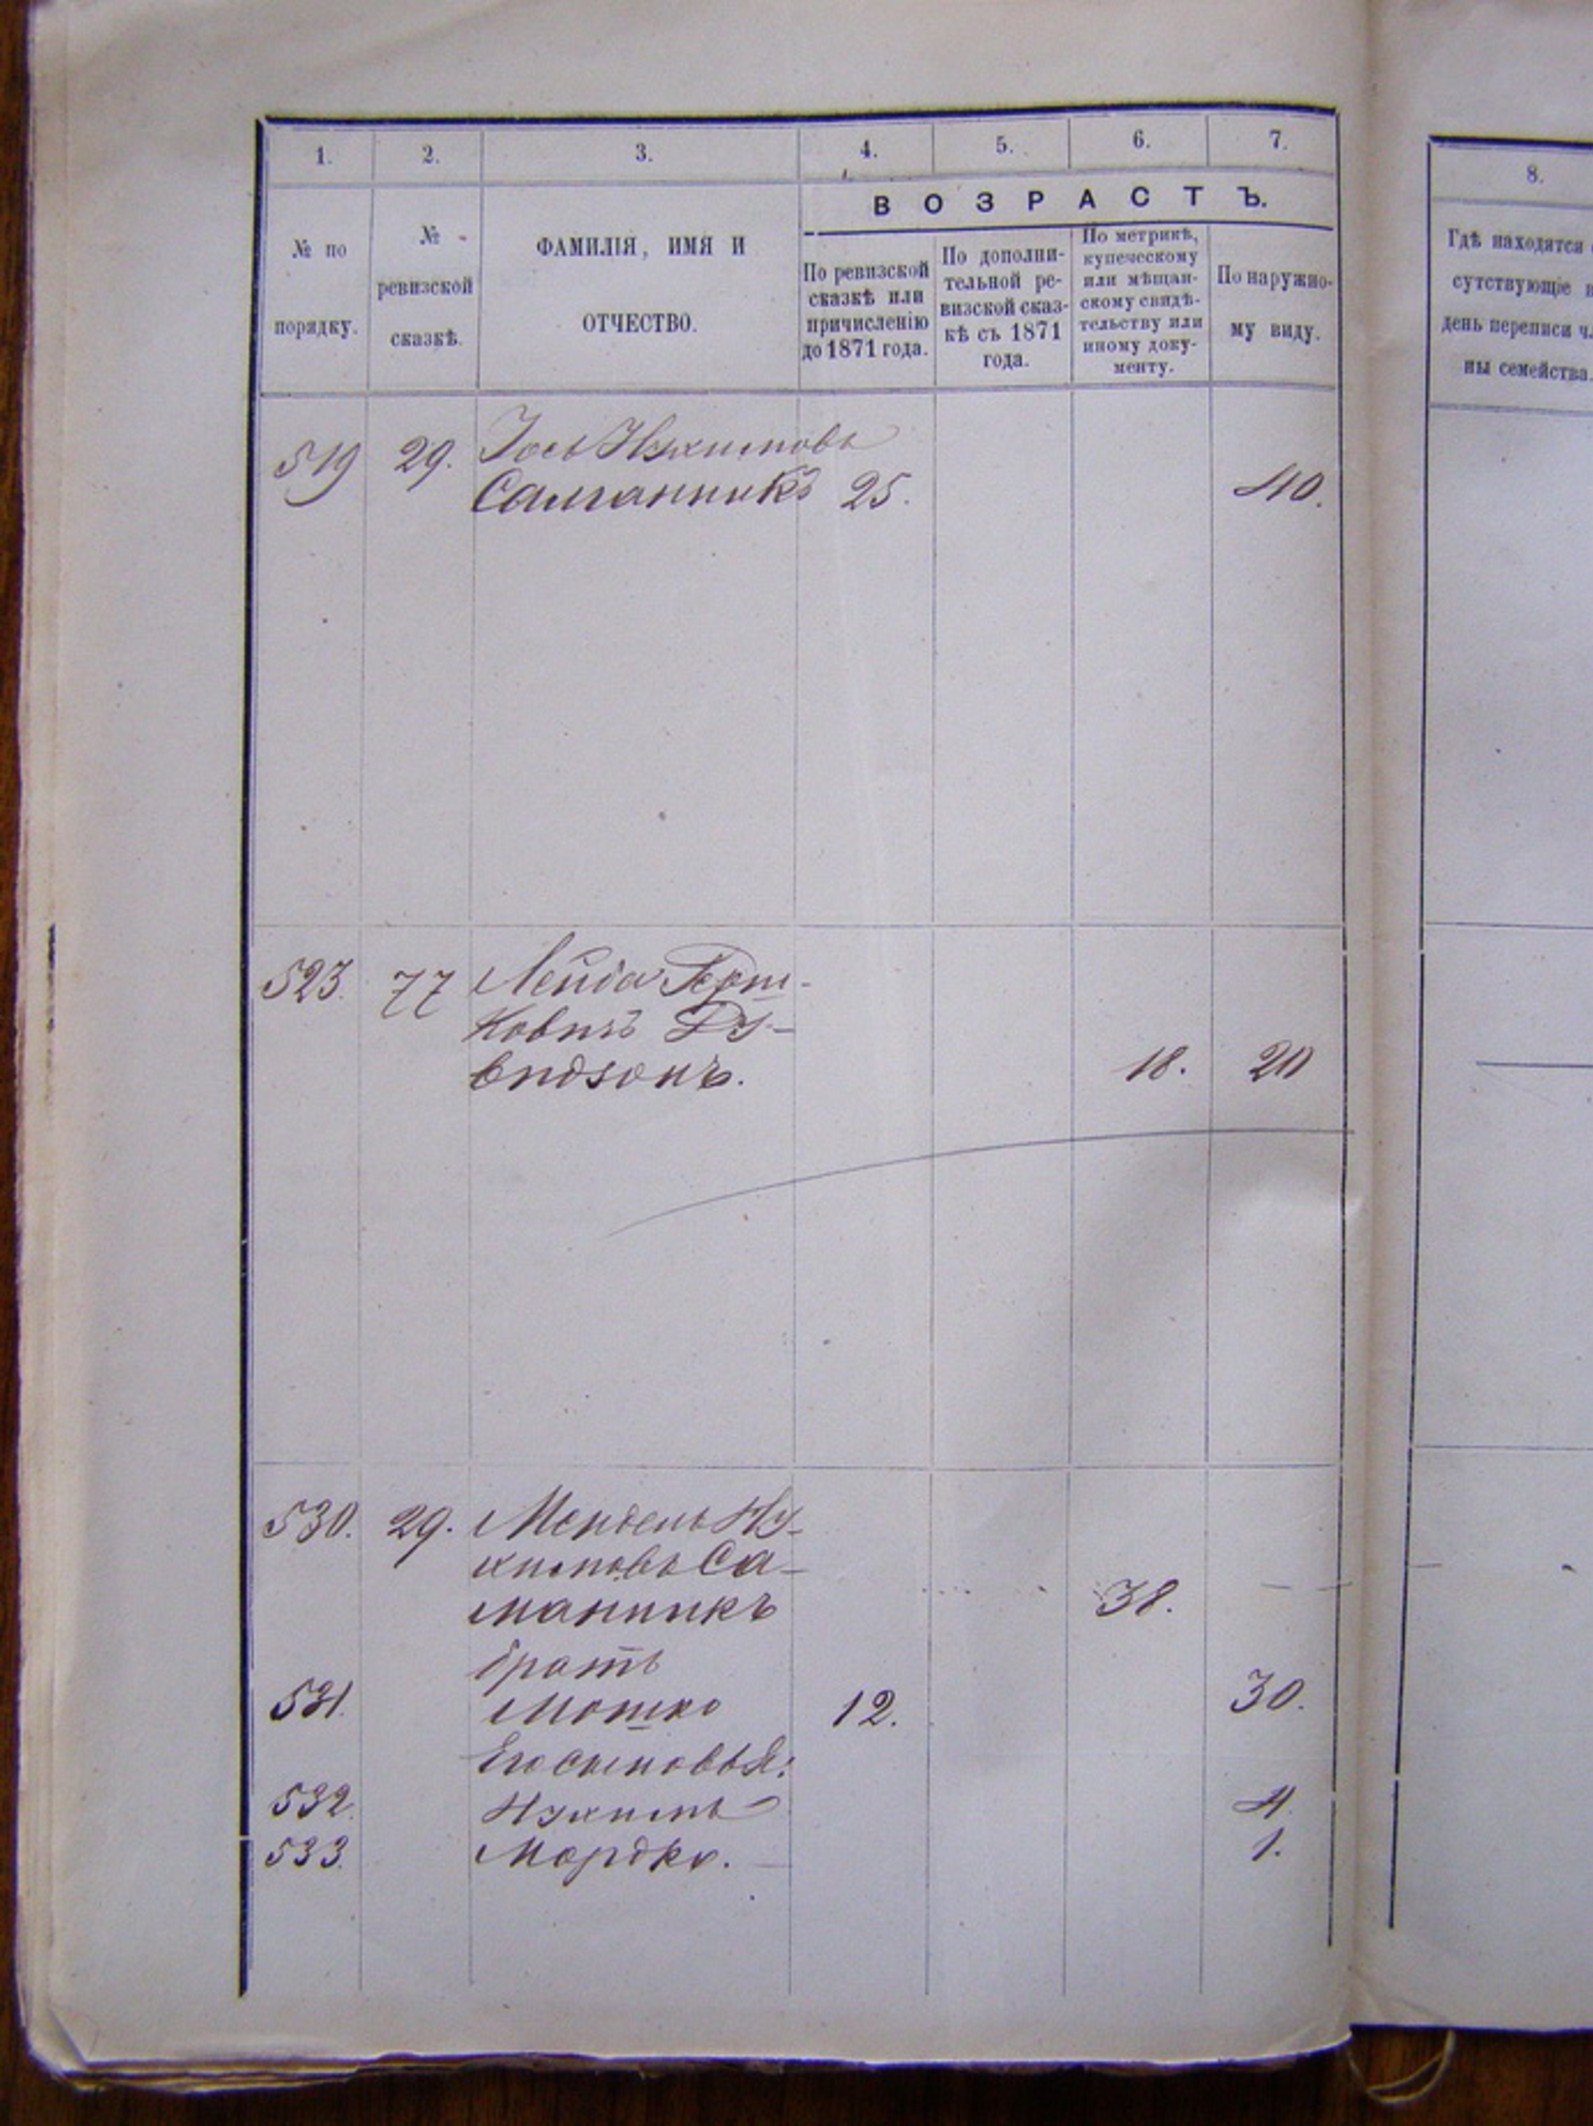 1. 2. 3. 4. 5. 6. 7.
ВОЗРАСТЪ.
№ по
порядку.
№
ревизской
сказкѣ.
ФАМИЛІЯ, ИМЯ И
ОТЧЕСТВО.
По ревизской
сказкѣ или
причисленію
до 1871 года.
По дополни-
тельной ре-
визской сказ-
кѣ съ 1871
года.
По метрикѣ,
купеческому
или мѣщан-
скому свидѣ-
тельству или
иному доку-
менту.
По наружно-
му виду.
519 29. Іось Нухимовъ
Саманникъ 25. 40.
523. 77 Лейба Герш-
ковичъ Ду-
видзонъ. 18. 20
530. 29. Мендель Ну-
химовъ Са-
манникъ 38.
братъ
531. Мошко 12. 30.
Его сыновья:
532. Нухимъ 4.
533. Мордко. 1.
8.
Гдѣ находятся
сутствующіе
день переписи
ны семейства.